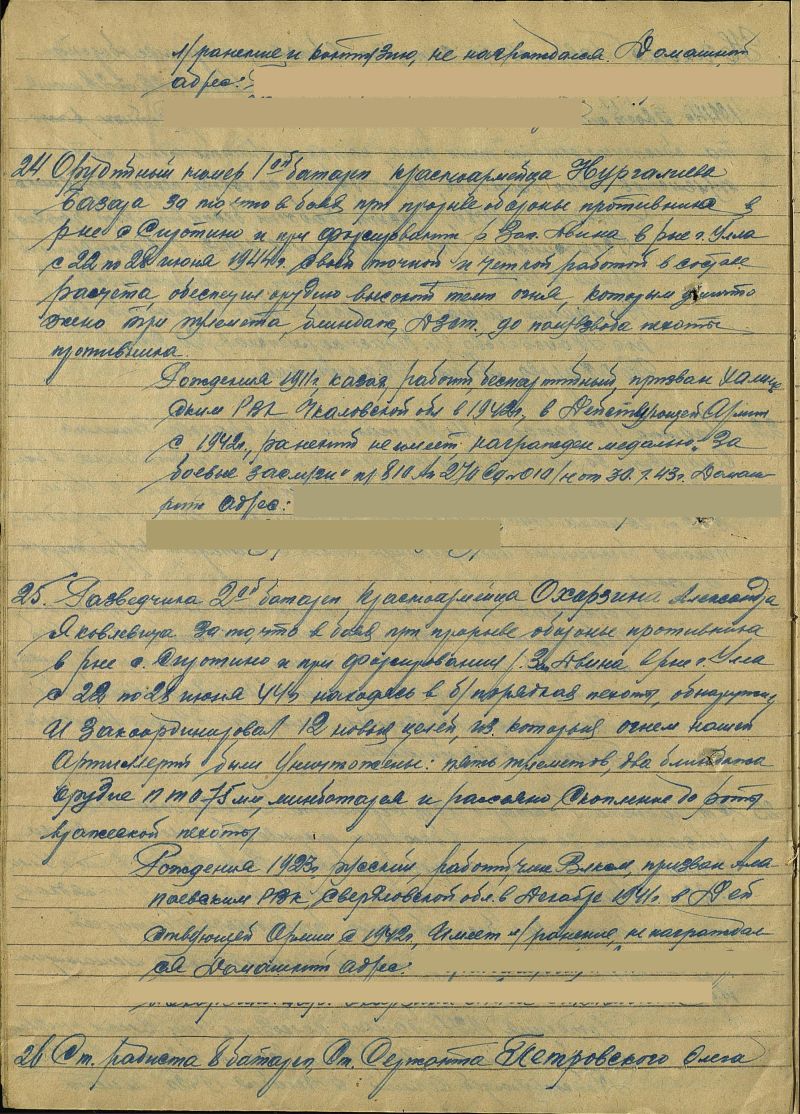 л/ранение и контузию, не награждался. Домашний
адрес:
24. Орудийный номер 1ой батареи красноармейца Нургалиева
за то, что в боях при прорыве обороны противника в
р-не с. Сиротино и при форсировании р. Зап. Двина в р-не г. Улла
с 22 по 28 июня 1944 г. своей точной и четкой работой в составе
расчета обеспечил орудию высокий темп огня, которым уничто
жено три пулемета, блиндаж, ДЗОТ, до полувзвода пехоты
противника.
Рождения 1911 г. казах, рабочий, беспартийный, призван
ским РВК Чкаловской обл в 1942 г., в Действующей Армии
с 1942 г., ранений не имеет, награжден медалью „За
боевые заслуги" пр 810 Ап 270 Сд №010/н от 30.7.43 г. Домаш-
ний адрес:
25. Разведчика 2ой батареи красноармейца Охарзина Александра
Яковлевича за то, что в боях при прорыве обороны противника
в р-не с. Сиротино и при форсировании р. Зап Двина в р-не г. Улла
с 22 по 28 июня 44 г находясь в б/порядках пехоты, обнаружил
и закоординировал 12 новых целей, из которых огнем нашей
Артиллерии были уничтожены: пять пулеметов, два блиндажа
орудие ПТО-75 мм, минбатарея и рассеяно скопление до роты
вражеской пехоты
Рождения 1923 г русский рабочий член Влксм, призван Ала
паевским РВК, Свердловской обл. в Декабре 1941 г. в Дей
ствующей Армии с 1942 г, Имеет л/ранение, не награждал-
ся Домашний адрес:
26 Ст. радиста 8 батареи, Ст. Сержанта Петровского Олега